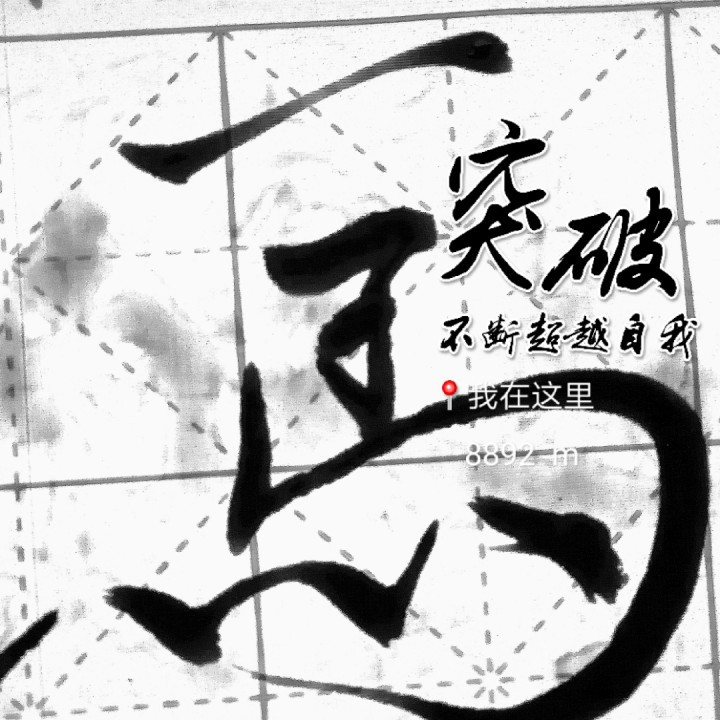 焉
突破
不断超越自我
我在这里
8892 m